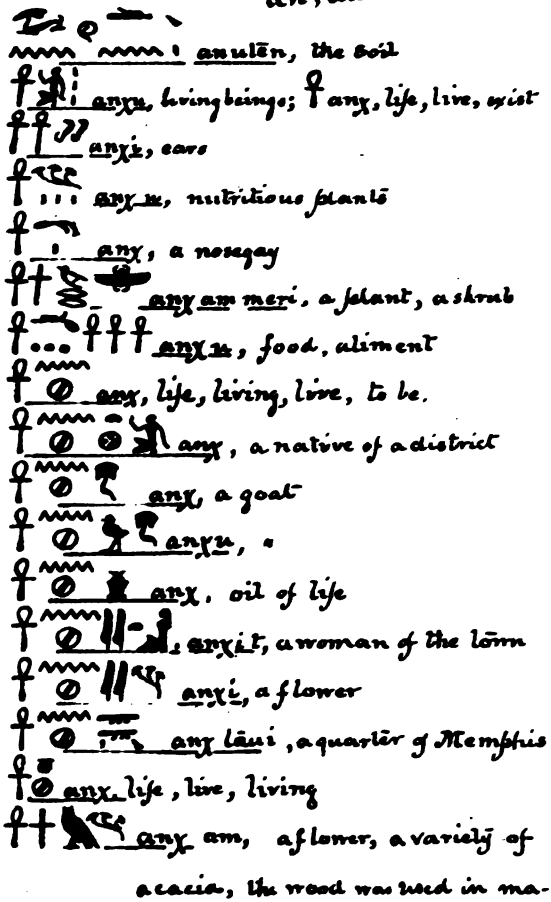 anutēn, the soil
anχu, living beings; anχ, life, live, exist
anχi, ears
anχ u, nutritious plants
anχ, a nosegay
anχ am meri, a plant, a shrub
anχ u, food, aliment
anχ, life, living, live, to be.
anχ, a native of a district
anχ, a goat
anχu, "
anχ, oil of life
anχit, a woman of the town
anχi, a flower
anχ taui, a quarter of Memphis
anχ, life, live, living
anχ am, a flower, a variety of
acacia, the wood was used in ma-